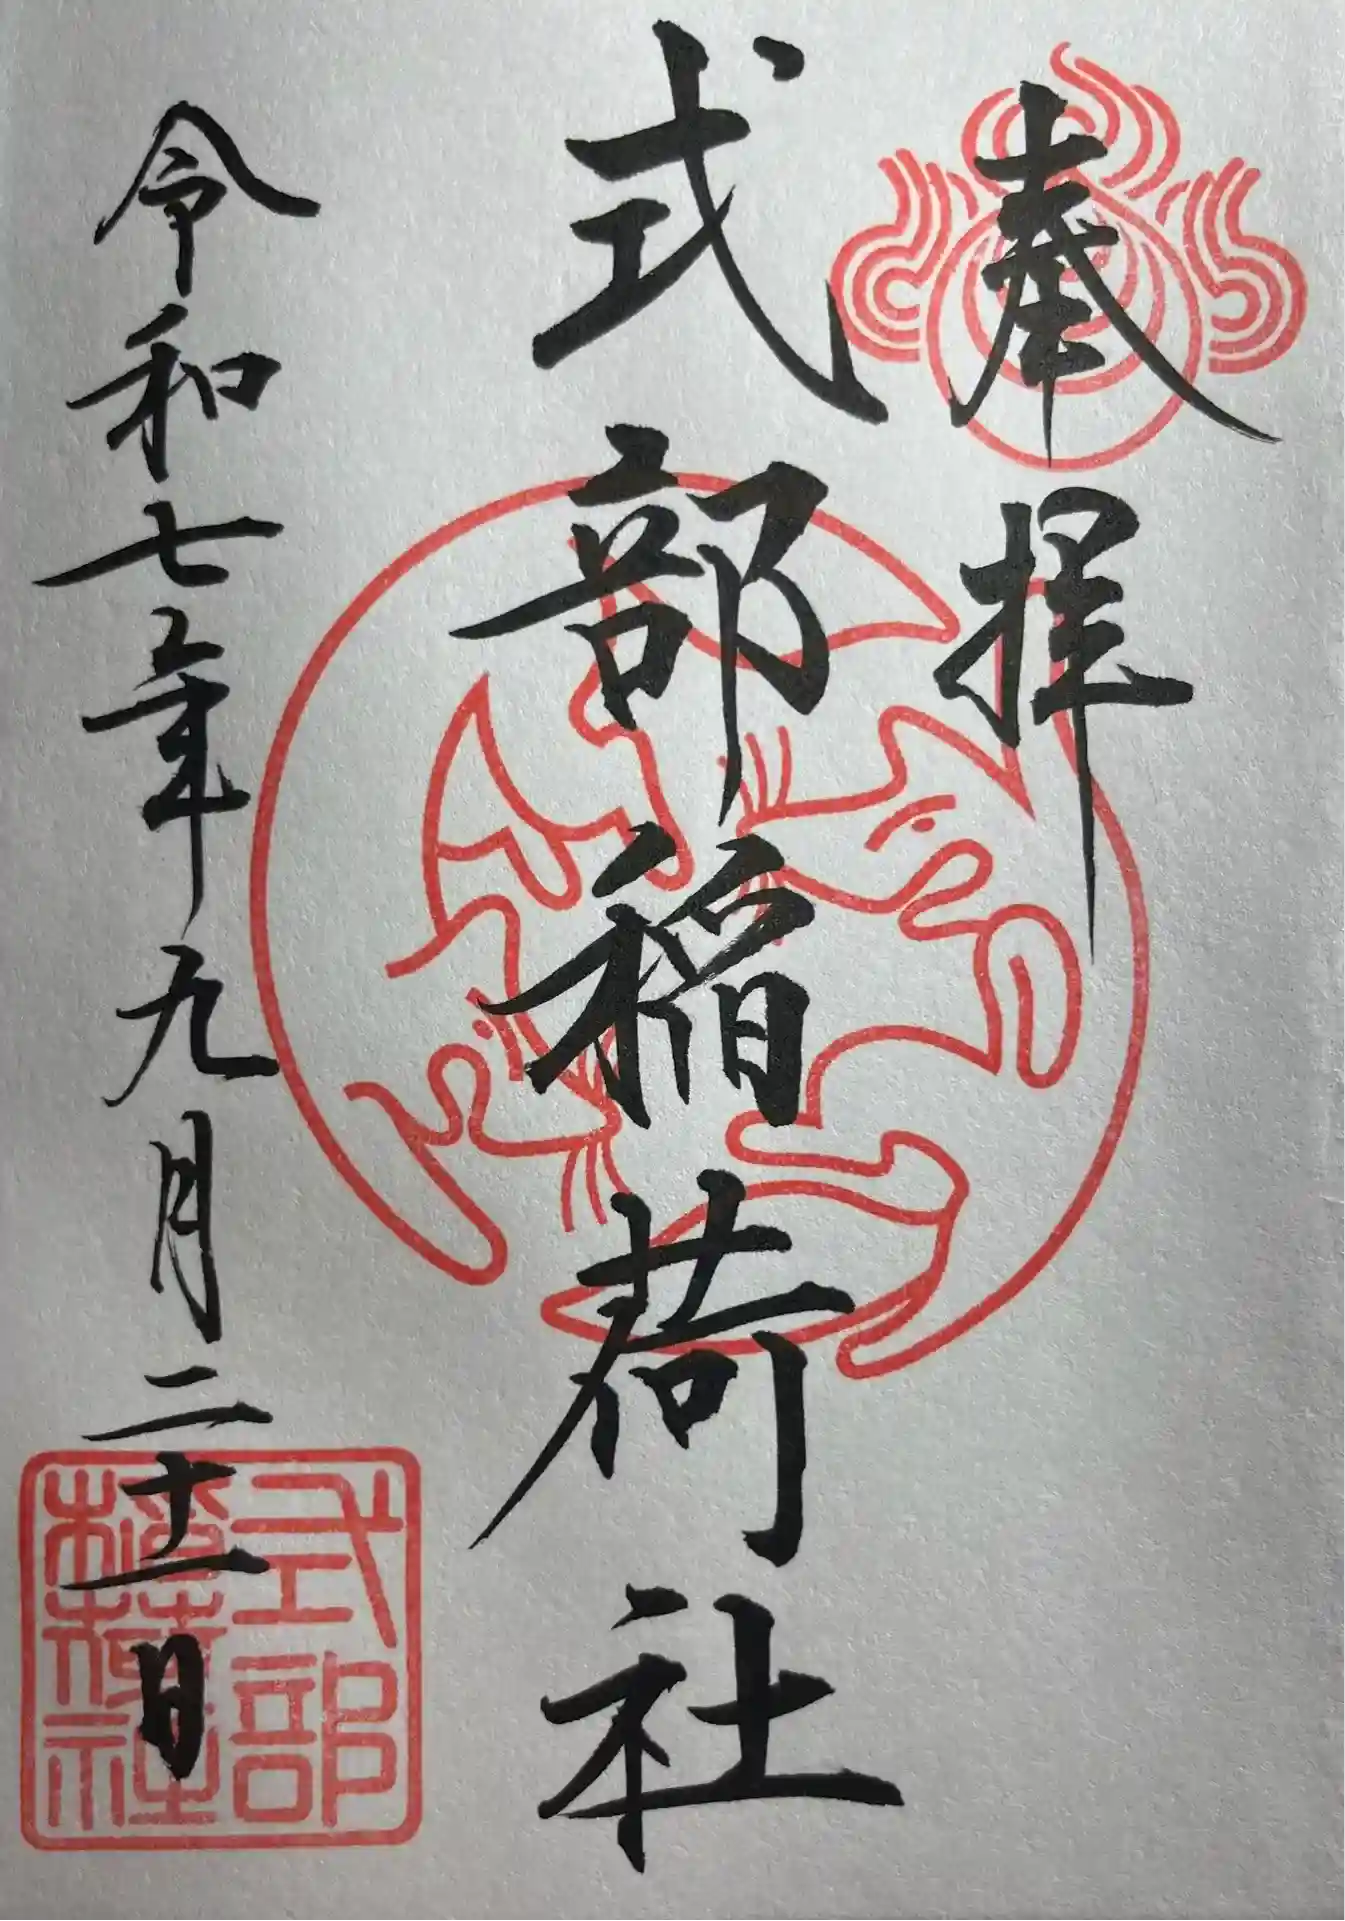 奉拝
式部稲荷社
令和七年九月二十二日
式部
稲荷社